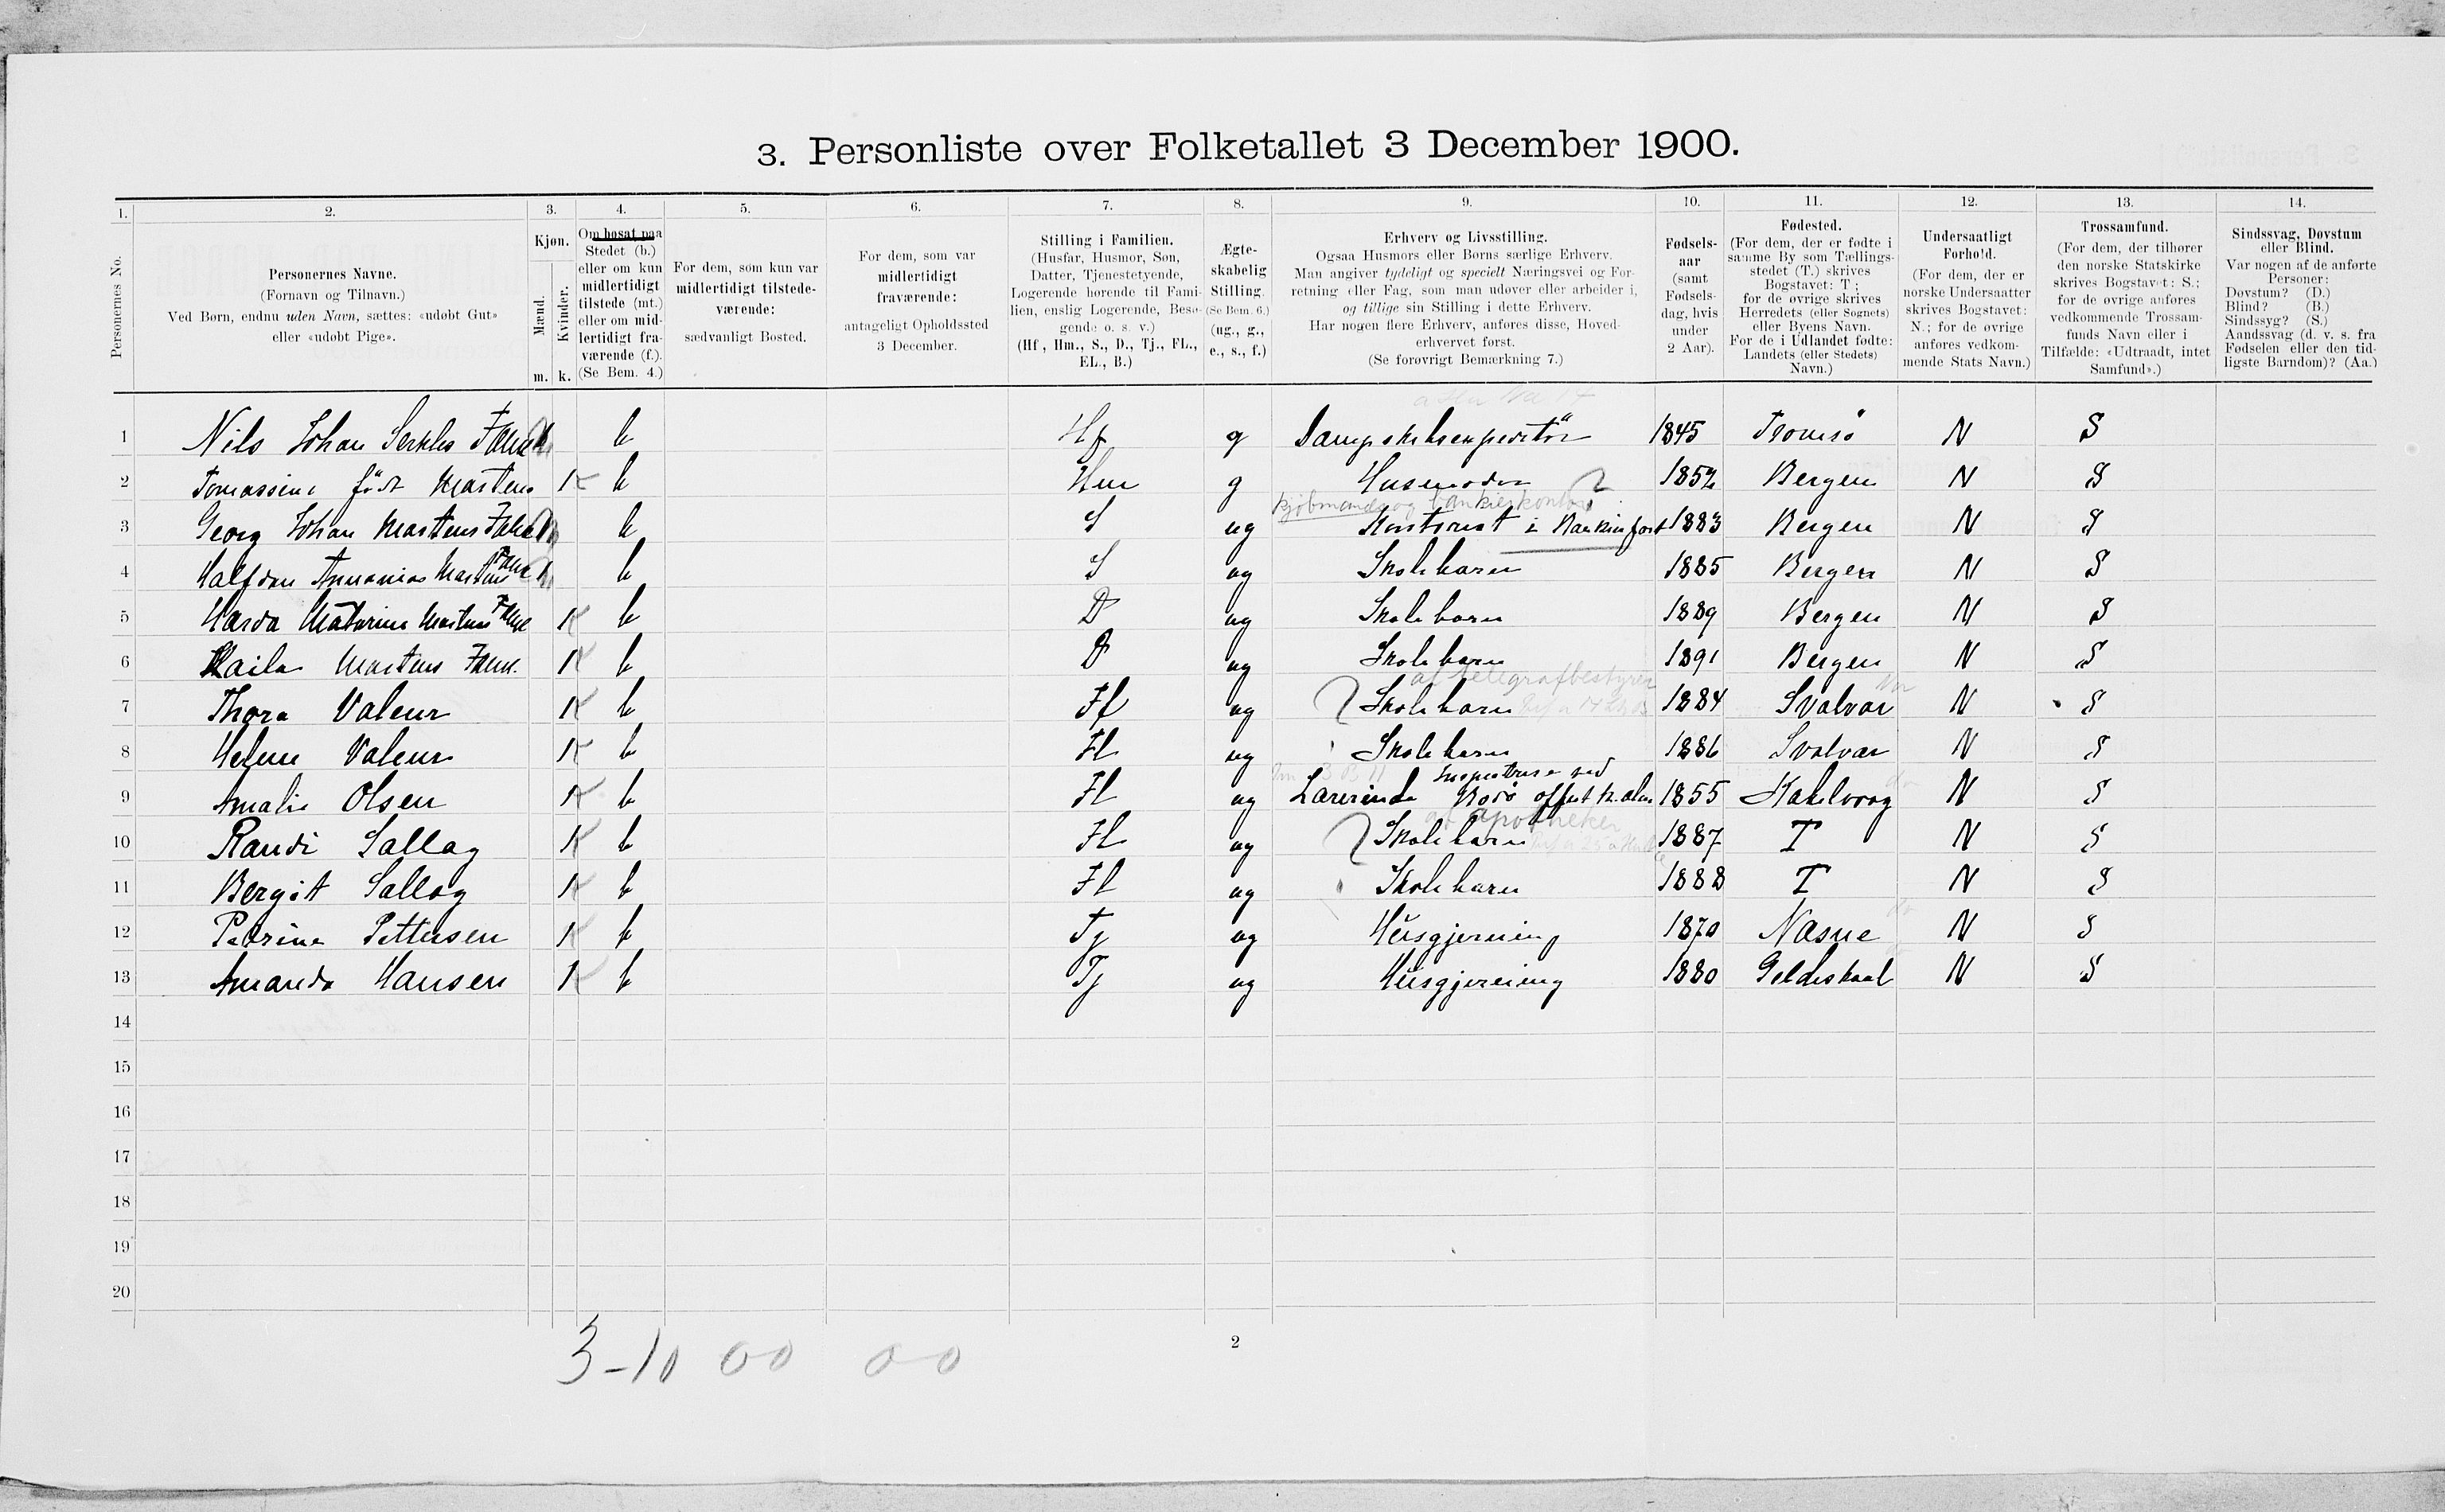 3. Personliste over Folketallet 3 December 1900.
1. 2. 3. 4. 5. 6. 7. 8. 9. 10. 11. 12. 13. 14.
Personernes No.
Personernes Navne.
(Fornavn og Tilnavn.)
Ved Børn, endnu uden Navn, sættes: «udøbt Gut»
eller «udøbt Pige».
Kjøn.
Mænd.
Kvinder.
m. k.
Om bosat paa
Stedet (b.)
eller om kun
midlertidigt
tilstede (mt.)
eller om mid-
lertidigt fra-
værende (f.).
(Se Bem. 4.)
For dem, som kun var
midlertidigt tilstede-
værende:
sædvanligt Bosted.
For dem, som var
midlertidigt
fraværende:
antageligt Opholdssted
3 December.
Stilling i Familien.
(Husfar, Husmor, Søn,
Datter, Tjenestetyende,
Logerende hørende til Fami-
lien, enslig Logerende, Besø-
gende o. s. v.)
(Hf, Hm., S., D., Tj., FL.,
EL., B.)
Ægte-
skabelig
Stilling.
(Se Bem. 6.)
(ug., g.,
e., s., f.)
Erhverv og Livsstilling.
Ogsaa Husmors eller Børns særlige Erhverv.
Man angiver tydeligt og specielt Næringsvei og For-
retning eller Fag, som man udøver eller arbeider i,
og tillige sin Stilling i dette Erhverv.
Har nogen flere Erhverv, anføres disse, Hoved-
erhvervet først.
(Se forøvrigt Bemærkning 7.)
Fødsels-
aar
(samt
Fødsels-
dag, hvis
under
2 Aar).
Fødested.
(For dem, der er fødte i
samme By som Tællings-
stedet (T.) skrives
Bogstavet: T;
for de øvrige skrives
Herredets (eller Sognets)
eller Byens Navn.
For de i Udlandet fødte:
Landets (eller Stedets)
Navn.)
Undersaatligt
Forhold.
(For dem, der er
norske Undersaatter
skrives Bogstavet:
N.; for de øvrige
anføres vedkom-
mende Stats Navn.)
Trossamfund.
(For dem, der tilhører
den norske Statskirke
skrives Bogstavet: S.;
for de øvrige anføres
vedkommende Trossam-
funds Navn eller i
Tilfælde: «Udtraadt, intet
Samfund».)
Sindssvag, Døvstum
eller Blind.
Var nogen af de anførte
Personer:
Døvstum? (D.)
Blind? (B.)
Sindssyg? (S.)
Aandssvag (d. v. s. fra
Fødselen eller den tid-
ligste Barndom)? (Aa.)
1 Nils Johan b Hf g Dampskibsexpeditör 1845 Tromsö N S
2 født Martens K b Hm g Husmoder 1852 Bergen N S
kjøbmands og bankierkontor
3 Georg Johan Martens b S ug Kontorist i 1883 Bergen N S
4 Halfdan Martens b S ug Skolebarn 1885 Bergen N S
5 Martens K b D ug Skolebarn 1889 Bergen N S
6 Laila Martens K b D ug Skolebarn 1891 Bergen N S
af telegrafbestyrer
7 Thora Valeur K b Fl ug Skolebarn 1884 Svolvær N S
8 Helene Valeur K b Fl ug Skolebarn 1886 Svolvær N S
9 Amalie Olsen K b Fl ug Lærerinde Bodø 1855 N S
af apotheker
10 Randi K b Fl ug Skolebarn 1887 T N S
11 Bergit K b Fl ug Skolebarn 1888 T N S
12 Petrine Pettersen K b Tj ug Husgjerning 1870 Næsne N S
13 Amanda Hansen K b Tj ug Husgjerning 1880 Gildeskaal N S
14
15
16
17
18
19
20
3-10 0-0 0-0
2